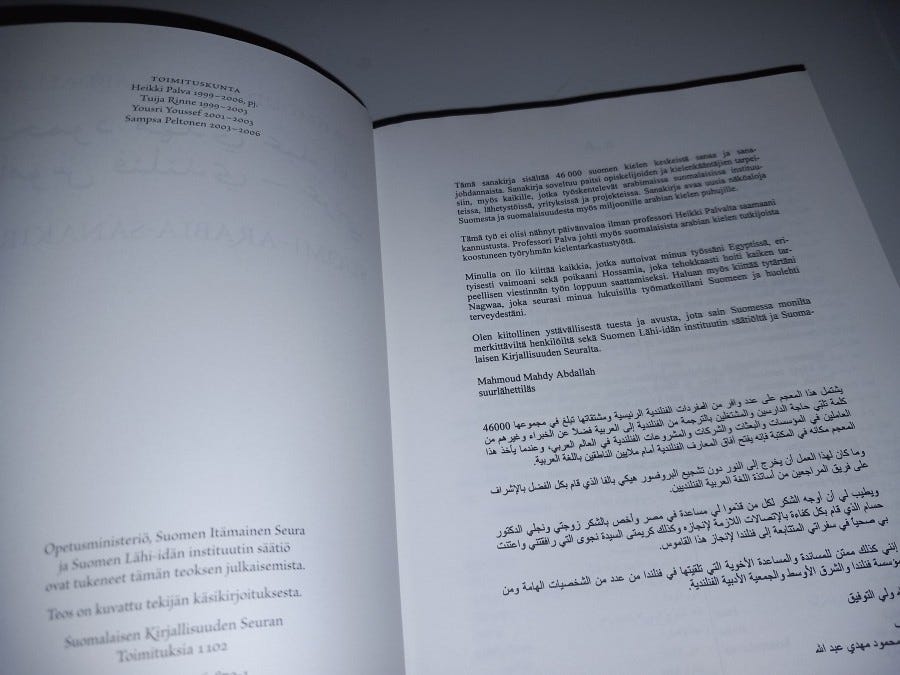 TOIMITUSKUNTA
Heikki Palva 1999–2006, pj.
Tuija Rinne 1999–2003
Yousri Youssef 2001–2003
Sampsa Peltonen 2003–2006
Opetusministeriö, Suomen Itämainen Seura
ja Suomen Lähi-idän instituutin säätiö
ovat tukeneet tämän teoksen julkaisemista.
Teos on kuvattu tekijän käsikirjoituksesta.
Suomalaisen Kirjallisuuden Seuran
Toimituksia 1102
Tämä sanakirja sisältää 46 000 suomen kielen keskeistä sanaa ja sana-
johdannaista. Sanakirja soveltuu paitsi opiskelijoiden ja kielenkääntäjien tarpei-
siin, myös kaikille, jotka työskentelevät arabimaissa suomalaisissa instituu-
teissa, lähetystöissä, yrityksissä ja projekteissa. Sanakirja avaa uusia näköaloja
Suomesta ja suomalaisuudesta myös miljoonille arabian kielen puhujille.
Tämä työ ei olisi nähnyt päivänvaloa ilman professori Heikki Palvalta saamaani
kannustusta. Professori Palva johti myös suomalaisista arabian kielen tutkijoista
koostuneen työryhmän kielentarkastustyötä.
Minulla on ilo kiittää kaikkia, jotka auttoivat minua työssäni Egyptissä, eri-
tyisesti vaimoani sekä poikaani Hossamia, joka tehokkaasti hoiti kaiken tar-
peellisen viestinnän työn loppuun saattamiseksi. Haluan myös kiittää tytärtäni
Nagwaa, joka seurasi minua lukuisilla työmatkoillani Suomeen ja huolehti
terveydestäni.
Olen kiitollinen ystävällisestä tuesta ja avusta, jota sain Suomessa monilta
merkittäviltä henkilöiltä sekä Suomen Lähi-idän instituutin säätiöltä ja Suoma-
laisen Kirjallisuuden Seuralta.
Mahmoud Mahdy Abdallah
suurlähettiläs
يشتمل هذا المعجم على عدد وافر من المفردات الفنلندية الرئيسية ومشتقاتها تبلغ في مجموعها 46000
كلمة تلبّي حاجة الدارسين والمشتغلين بالترجمة من الفنلندية إلى العربية فضلاً عن الخبراء وغيرهم من
العاملين في المؤسسات والبعثات والشركات والمشروعات الفنلندية في العالم العربي، وعندما يأخذ هذا
المعجم مكانه في المكتبة فإنه يفتح آفاق المعارف الفنلندية أمام ملايين الناطقين باللغة العربية.
وما كان لهذا العمل أن يخرج إلى النور دون تشجيع البروفسور هيكي بالفا الذي قام بكل الفضل بالإشراف
على فريق المراجعين من أساتذة اللغة العربية الفنلنديين.
ويطيب لي أن أوجه الشكر لكل من قدّموا لي مساعدة في مصر وأخص بالشكر زوجتي ونجلي الدكتور
حسام الذي قام بكل كفاءة بالإتصالات اللازمة لإنجازه وكذلك كريمتى السيدة نجوى التي رافقتني واعتنت
بي صحياً في سفراتي المتتابعة إلى فنلندا لإنجاز هذا القاموس.
إنني كذلك ممتن للمساندة والمساعدة الأخوية التي تلقيتها في فنلندا من عدد من الشخصيات الهامة ومن
مؤسسة فنلندا والشرق الأوسط والجمعية الأدبية الفنلندية.
ولي التوفيق
محمود مهدي عبد الله